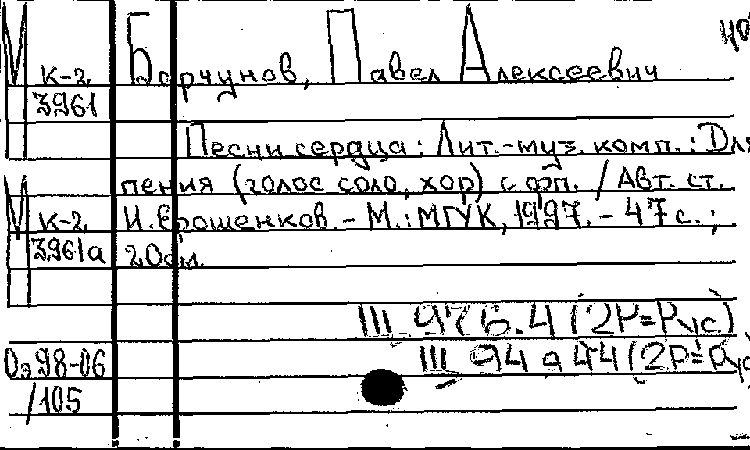 М к-2 Борчунов, Павел Алексеевич
3961
Песни сердца: Лит.-муз. комп.: Для
пения (голос соло, хор) с фп. / Авт. ст.
М к-2 И. Ерошенков. - М.: МГУК, 1997. - 47 с.;
3961а 20см.
III 976.4 (2Р=Рус)
Оз98-06 III 94 а 44 (2Р=Рус
/105